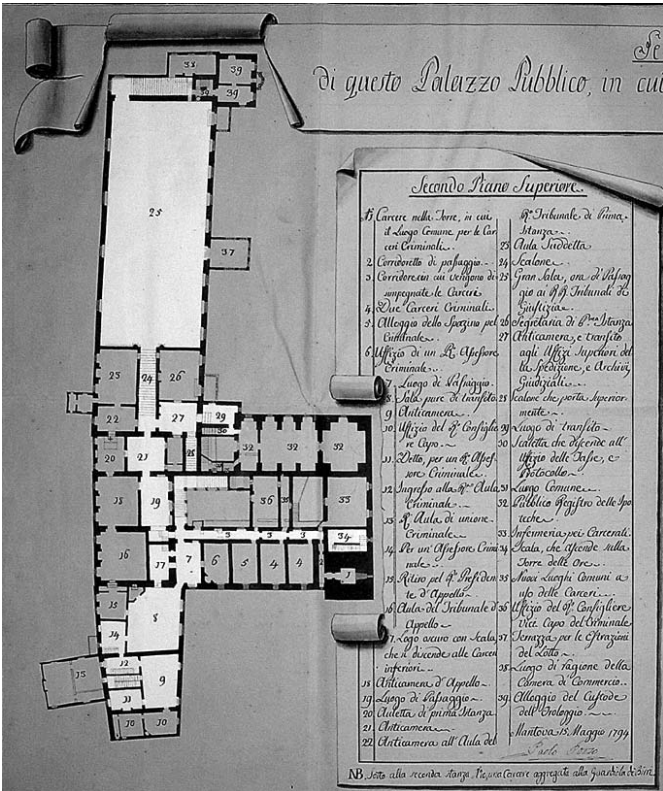 di questo Palazzo Pubblico, in cui
Secondo Piano Superiore.
Carcere nella Torre, in cui
il Luogo Comune per le Car
ceri Criminali
2 Corridoretto di passaggio
3 Corridore in cui vengono di
simpegnate le Carceri
4 Due Carceri Criminali
5 Alloggio dello Spazino pel
Criminale
6 Uffizio di un Assessore
Criminale
7 Luogo di Passaggio
8 Sala pure di transito
9 Anticamera
10 Uffizio del Consiglie
re Capo
11 Detto, per un Asses
sore Criminale
12 Ingresso alla Aula
Criminale
13 Aula di unione
Criminale
14 Per un' Assessore Crimi
nale
15 Ritiro pel Presiden
te d'Appello
16 Aula del Tribunale d'
Appello
17 Logo oscuro con Scala,
che discende alle Carceri
inferiori
18 Anticamera d'Appello
19 Luogo di Passaggio
20 Auletta di prima Istanza
21 Anticamera
22 Anticamera all' Aula del
Tribunale di Prima
Istanza
23 Aula Suddetta
24 Scalone
25 Gran Sala, ora di Passag
gio ai Tribunali di
Giustizia
26 Segretaria di Istanza
27 Anticamera, e transito
agli Uffizj Superiori del
la Spedizione, e Archivj
Giudiziali
28 Scalone che porta Superior
mente
29 Luogo di transito
30 Scaletta che discende all'
Uffizio delle Tasse, e
Protocollo
31 Luogo Comune
32 Pubblico Registro delle Ipo
teche
33 Infermeria pei Carcerati
34 Scala, che ascende sulla
Torre delle Ore
35 Nuovi Luoghi Comuni a
uso delle Carceri
36 Uffizio del Consigliere
vice Capo del Criminale
37 Terrazza per le Estrazioni
del Lotto
38 Luogo di ragione della
Camera di Commercio
39 Alloggio del Custode
dell' Orologgio
Mantova 15. Maggio 1794
Paolo Pozzo
NB. Sotto alla seconda stanza, Carcere aggregata alla Guardiola di Birri
38
39
39
25
37
23
24
26
22
27
29
20
21
32
32
32
18
19
36
33
3
3
3
34
16
17
7
6
5
4
4
1
15
8
14
13
12
9
11
10
10